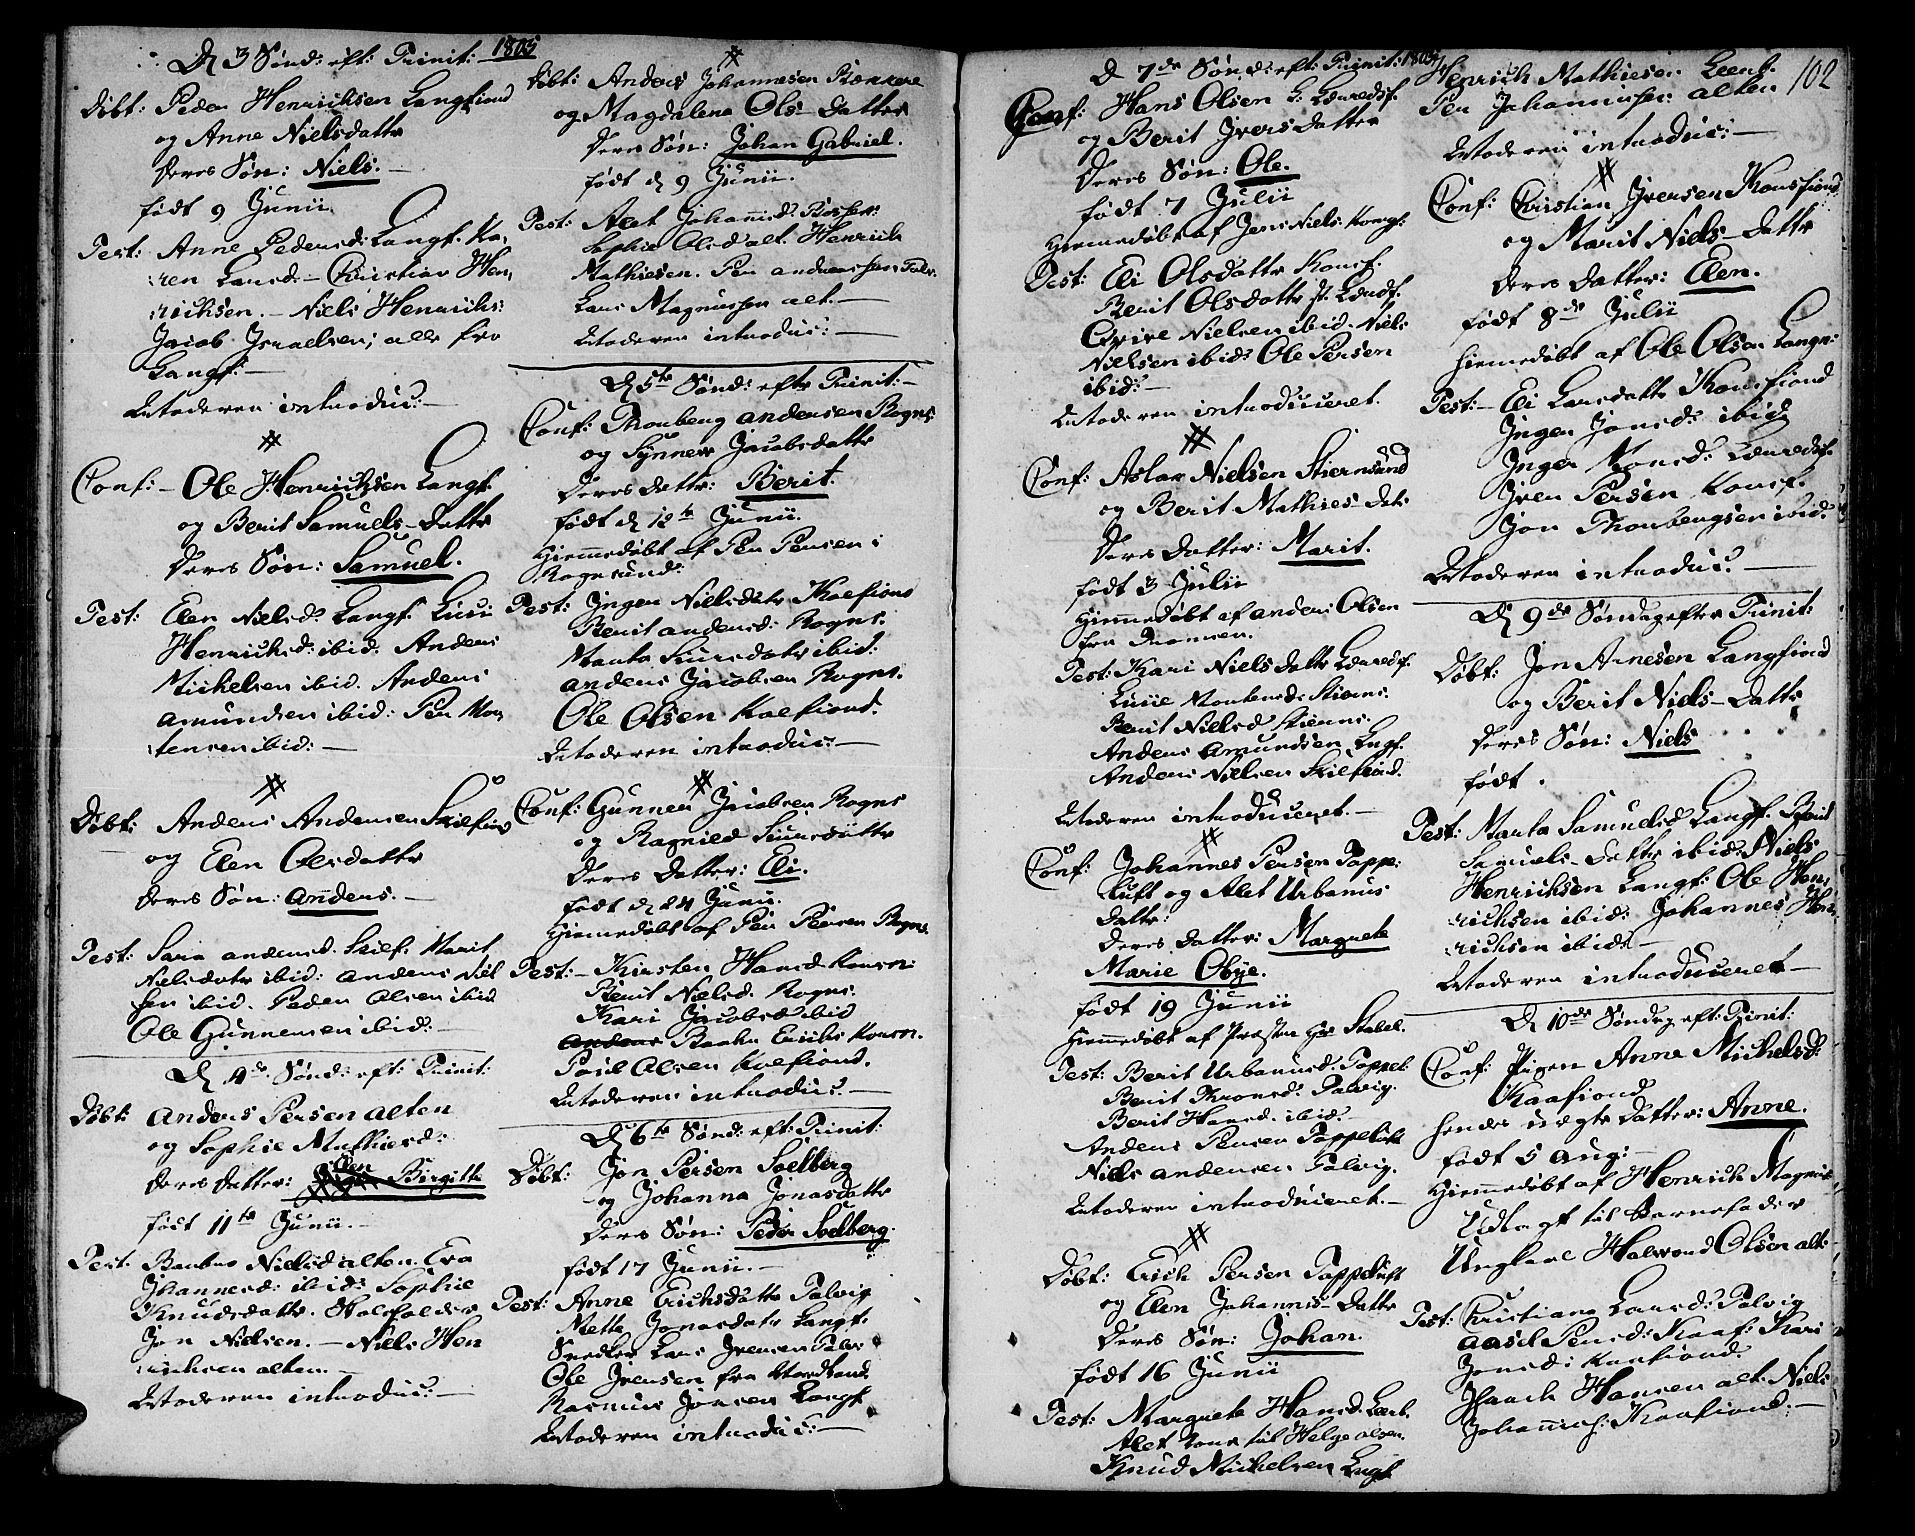 D 3 Sønd: eft: Trinit: 1805
Døbt: Peder Henrichsen Langfiord
og Anne Nielsdattr
Deres Søn: Niels. –
født 9 Junii
Test: Anne Pedersd: Langf. Ka,
ren Larsd – Christian Hen,
richsen. – Niels Henrichs:
Jacob Israelsen; alle fra
Langf: –
Moderen introduc: –
Conf: – Ole Henrichsen Langf.
og Berit Samuels – Dattr
Deres Søn: Samuel.
Test: Elen Nielsd: Langf. Lisii
Henrichsd: ibid: Anders
Michelsen ibid. Anders
Amundsen ibid: Per Mor
tensen ibid: –
Døbt: Anders Andersen Skilefiord
og Elen Olsdattr
Deres Søn: Anders. –
Test: Sara Andersd. Skief. Marit
Nielsdatr ibid: Anders Niel
sen ibid. Peder Olsen ibid
Ole Gunnersen ibid: –
D 4de Sønd: eft: Trinit:
Døbt: Anders Persen Alten
og Sophie Mathiesd:
Deres Datter: Elen Birgitte
født 11te Junii. –
Test: Barbro Nielsd Alten. Eva
Johannesd: ibid: Sophie
Knudsdattr.
Jon Nielsen. – Niels Hen
richsen Alten. –
Moderen introduc: –
Døbt: Anders Johannesen
og Magdalena Ols – Datter
Deres Søn: Johan Gabriel.
født d 9 Junii.
Test: Alet Johannisd.
Sophie Olsd Alt. Henrich
Mathiesen. Per Anderssen Talv:
Lars Magnussen Alt. –
Moderen introduc: –
D 5te Sønd: eftr Trinit: –
Conf: Thorberg Andersen Rogns
og Synnev Jacobsdattr
Deres Dattr: Berit.
født d 12te Junii.
Hiemmedøbt af Per Persen i
Rognsund:
Test: Inger Nielsdatr Koefiord
Berit Andersd: Rogns.
Marta Siursdatr ibid:
Anders Jacobsen Rogns.
Ole Olsen Koefiord.
Moderen introduc: –
Conf: Gunner Jacobsen Rogns
og Ragnild Siursdattr
Deres Datter: Eli.
født d 24 Junii.
Hiemmedøbt af Per Persen Rogns.
Test: – Kirsten Hansd
Berit Nielsd. Rogns.
Kari Jacobsd ibid
Poul Olsen Koefiord.
Moderen introduc: –
D 6te Sønd: eft: Trinit:
Døbt: Jon Persen Soelberg
og Johanna Jonasdattr
Deres Søn: Peder Soelberg.
født 17 Junii. –
Test: Anne Erichsdattr Talvig
Mette Jonasdatr Langf.
Snedker Lars Iversen Talv:
Ole Iversen fra Nordland
Rasmus Jonsen Langf
Moderen introduc: –
D 7de Sønd: eft: Trinit: 1805
Conf: Hans Olsen L: Lerredsf.
og Berit Ivers Datter
Deres Søn: Ole.
født 7 Julii
Hiemmedøbt af Jens Niels. Kongs:
Test: Eli Olsdattr Konsf.
Berit Olsdattr
Nielsen ibid. Niels
Nielsen ibid: Ole Persen
ibid: –
Moderen introduceret.
Conf: Aslac Nielsen Stiernsund
og Berit Mathies Dat:
Deres Datter: Marit.
født 3 Julii
Hiemmedøbt af Anders Olsen
fra Tromsen.
Test: Kari Niels Dattr Lerredsf.
Lisii Mortensd: Stierns:
Berit Nielsd Stierns.
Anders Amundsen Lngf.
Anders Nielsen Skilefiord.
Moderen introduceret. –
Conf: Johannes Persen Poppe:
luft og Alet Urbanus
Datter:
Deres Datter: Margrete
Marie Obye.
født 19 Junii
Hiemmedøbt af Præsten Hr Stabel.
Test: Berit Urbanusd. Poppel:
Berit Thronsd. Talvig.
Berit Hansd. ibid:
Anders Persen Poppeluft
Niels Andersen Talvig.
Moderen introduceret. –
Døbt: Erich Persen Poppeluft
og Elen Johannis – Dattr
Deres Søn: Johan.
født 16 Junii
Test: Margrete Hansd.
Alet Kone til Helge Olsen.
Knud Michelsen Lngf.
102
Henrich Mathiesen
Per Johannissen Alten
Moderen introduc: –
Conf: Christian Iversen Konsfiord
og Marit Niels – Dattr
Deres Datter: Elen.
født 8de Julii
Hiemedøbt af Ole Olsen Langn:
Test: – Eli Larsdattr Konsfiord
Inger Jonsd: ibid
Inger Monsd. Lerredsf.
Iver Persen Konsf.
Jon Thorbergsen ibid:
Moderen introduc: –
D 9de Søndag efter Trinit:
Døbt: Jon Arnesen Langfiord
og Berit Niels – Dattr
Deres Søn: Niels
født .
Test: Marta Samuelsd Langf. Berit
Samuels – Dattr ibid: Niels
Henrichsen Langf: Ole Hen,
richsen ibid: Johannes Hen,
richsen ibid: –
Moderen introduceret –
D 10de Søndag eft: Trinit:
Conf: Pigen Anne Michelsd:
Kaafiord
hendes uægte Datter: Anne.
født 5 Aug: –
Hjemmedøbt af Henrich Magnus
Udlagt til Barnefader
Ungkarl Halvord Olsen Alt:
Test: Christiana Larsd: Talvig
Aasel Persd: Kaaf: Kari
Jonsd: Kaafiord.
Isaach Hansen Alt. Niels
Johannis: Kaafiord. –